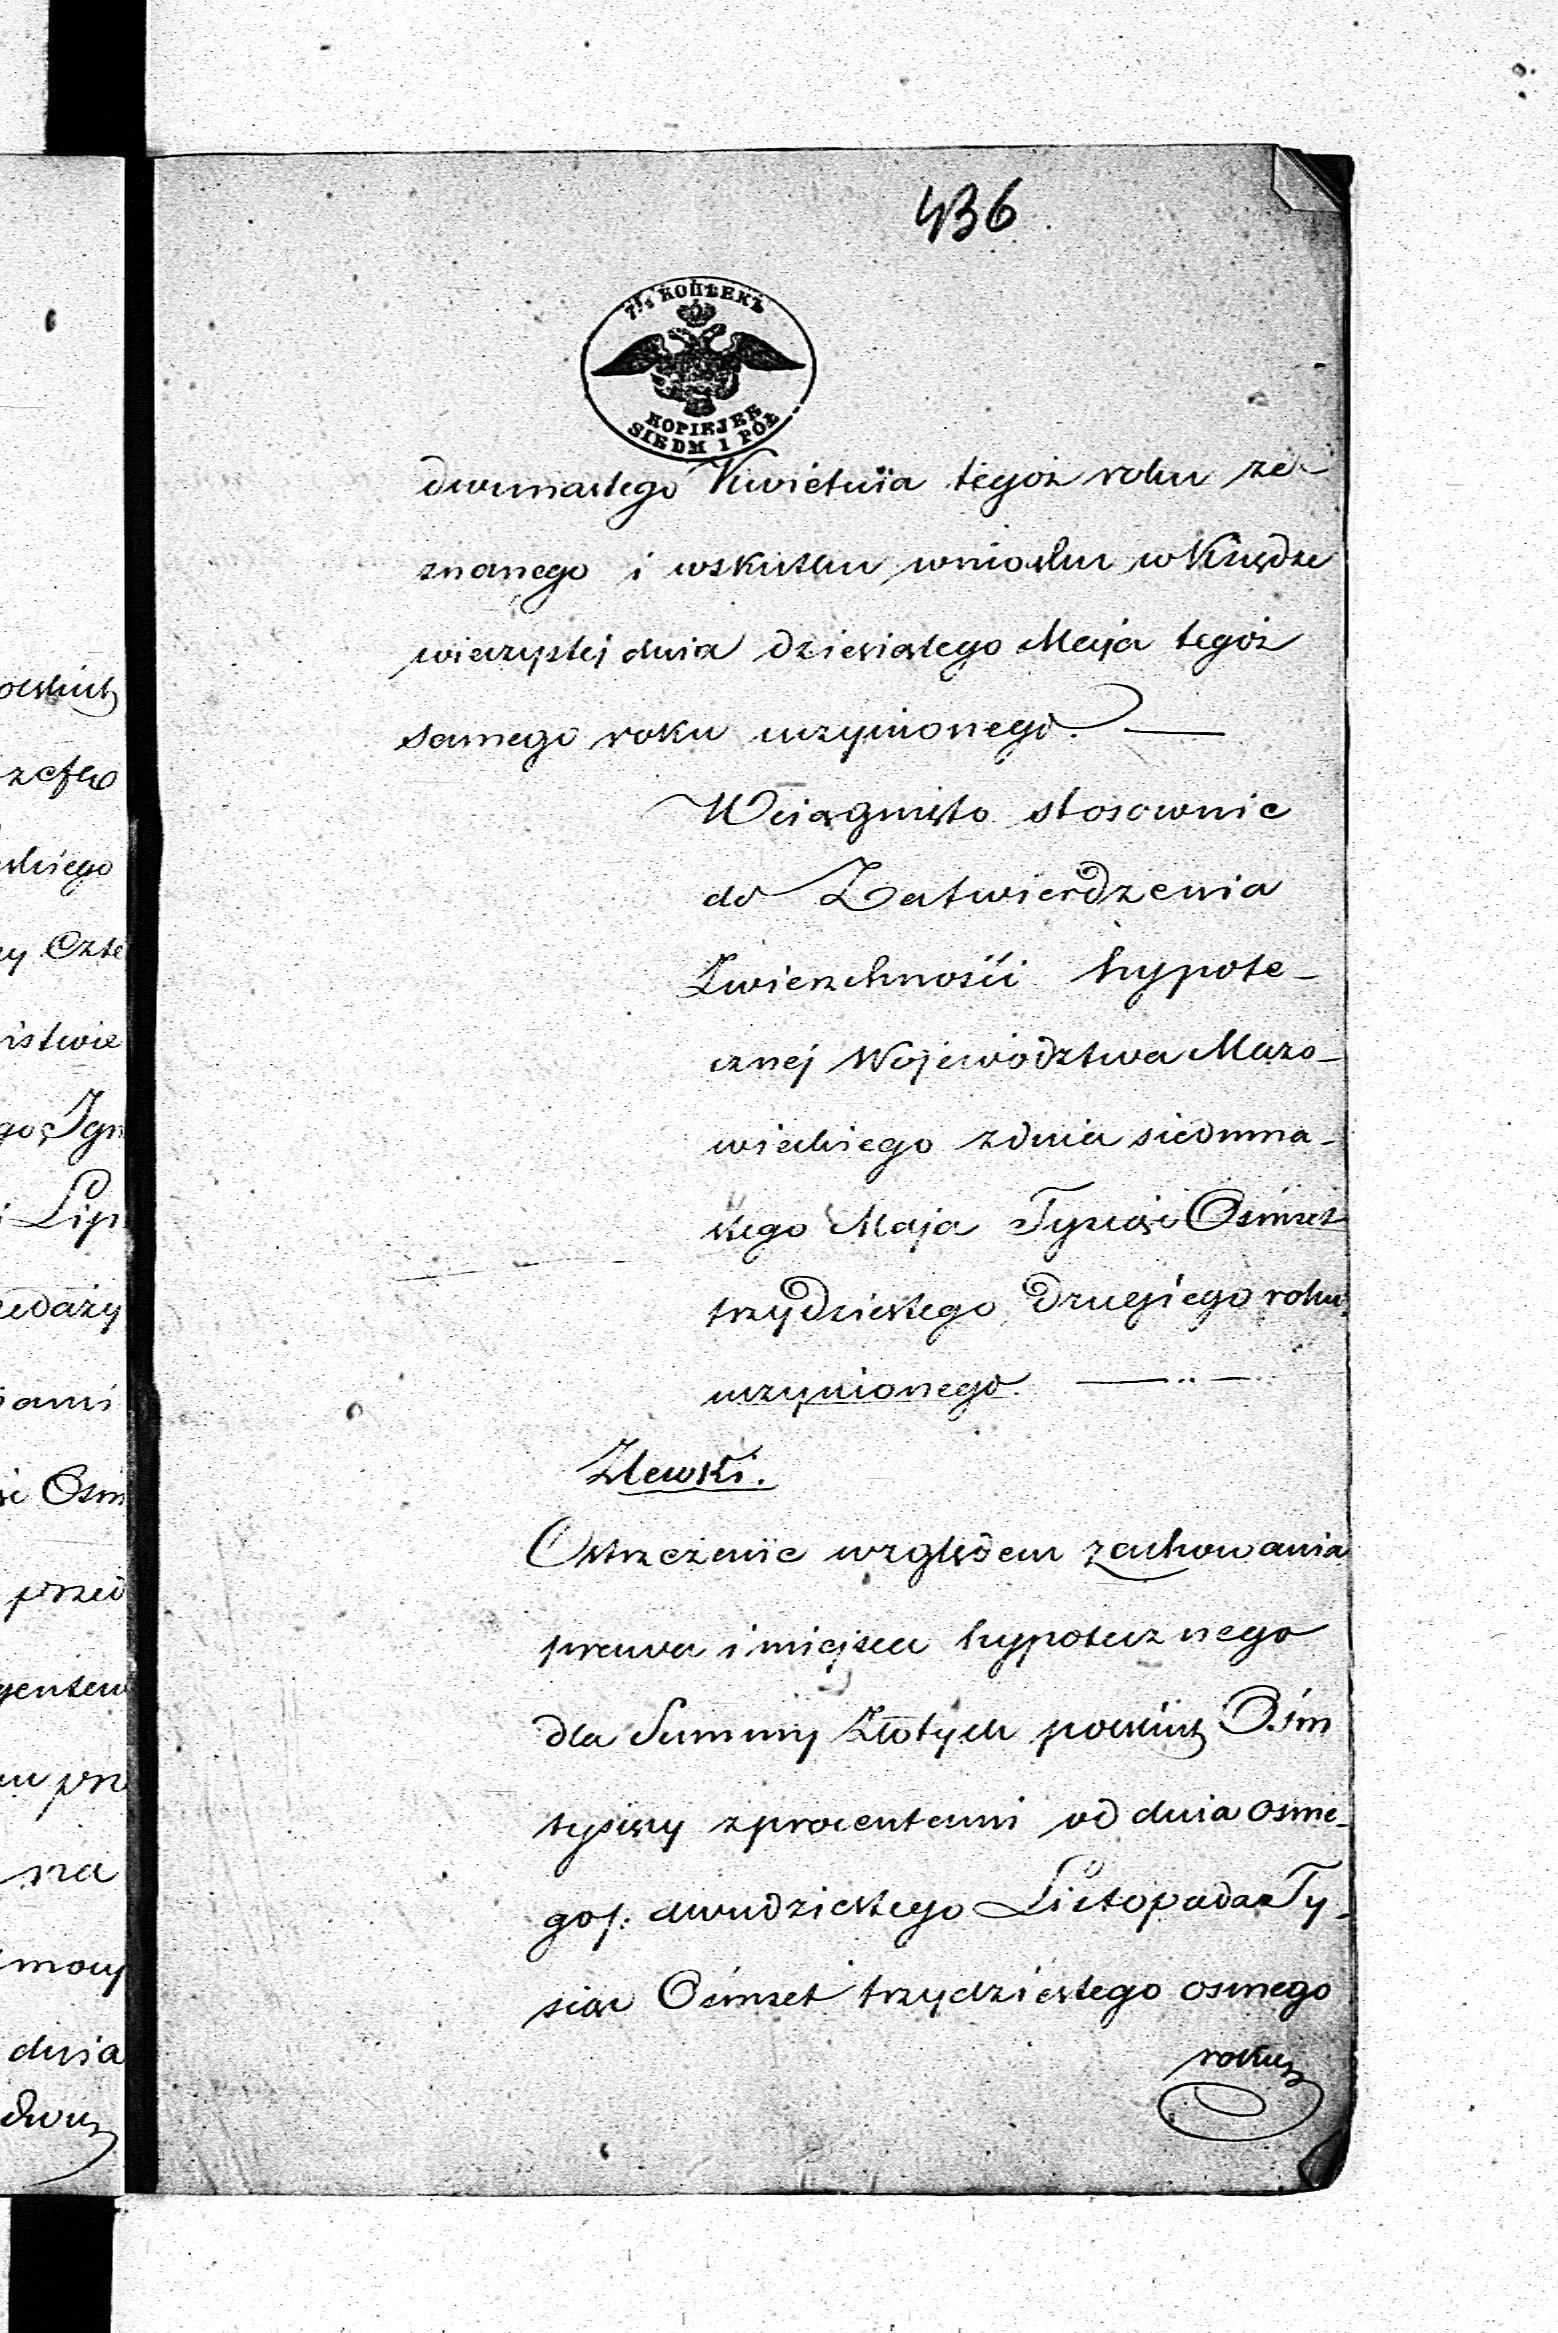 436
7½ КОПѢЕКЪ
KOPIEJEK
SIEDM I PÓŁ
dwunastego Kwietnia tegoż roku ze-
znanego i wskutku wniosku w Księdze
wieczystej dnia dziesiątego Maja tegoż
samego roku uczynionego. —
Wciągnięto stosownie
do Zatwierdzenia
Zwierzchności hypote-
cznej Województwa Mazo-
wieckiego z dnia siedmna-
stego Maja Tysiąc Ośmset
trzydziestego drugiego roku
uczynionego. —..—
Zlewki.
Ostrzeżenie względem zachowania
prawa i miejsca hypotecznego
dla Summy Złotych polskich Ośm
tysięcy z procentami od dnia osme-
go/: dwudziestego Listopada Ty-
siąc Ośmset trzydziestego osmego
roku
polskich
skiego
Czte
Lip
edaży
ami
Ośm
przed
prze
na
mocy
dnia
dwu